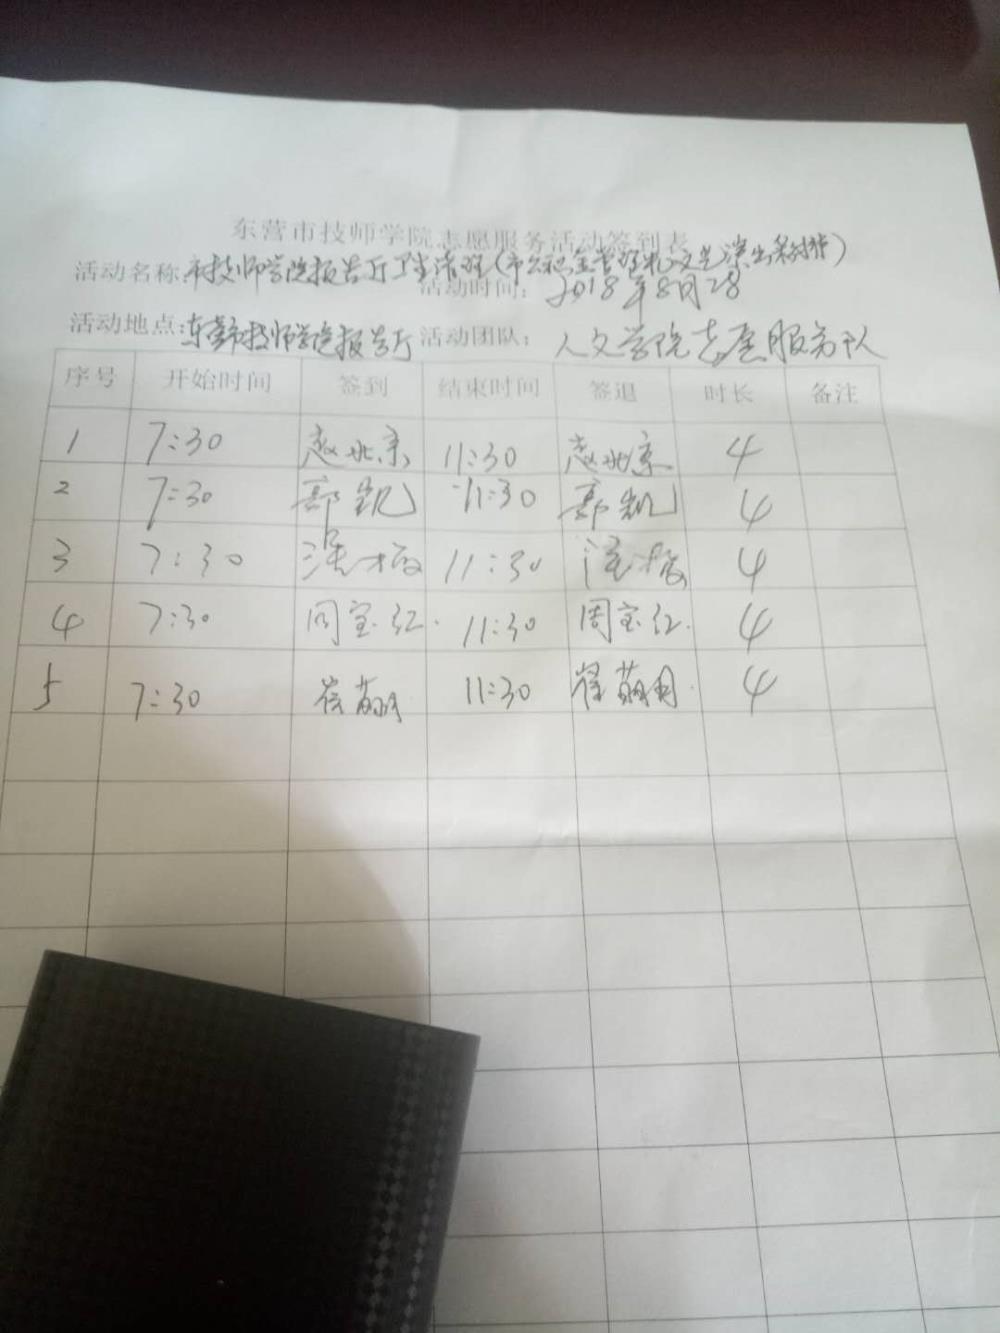 东营市技师学院志愿服务活动签到表
活动名称:市技师学院报告厅卫生清理(市公积金管理 文艺演出彩排)
活动时间: 2018年8月28
活动地点:东营市技师学院报告厅 活动团队: 人文学院志愿服务队
序号 开始时间 签到 结束时间 签退 时长 备注
1 7:30 赵北京 11:30 赵北京 4
2 7:30 郭凯 11:30 郭凯 4
3 7:30 11:30 4
4 7:30 周宝红. 11:30 周宝红. 4
5 7:30 崔萌月 11:30 崔萌月. 4